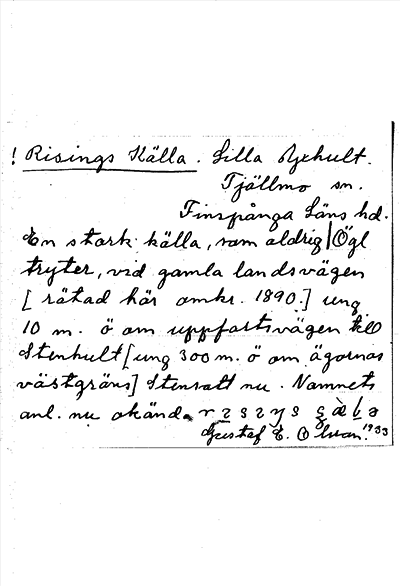 ! Risings Källa. Lilla
Tjällmo sn.
Finspånga Läns hd.
En stark källa, som aldrig | Ögl
tryter, vid gamla landsvägen
[rätad här omkr. 1890.] ung
10 m. ö om uppfartsvägen till
Stenhult [ung 300 m. ö om ägornas
västgräns] Stensatt nu. Namnets
anl. nu okänd.
Gustaf E. 1933